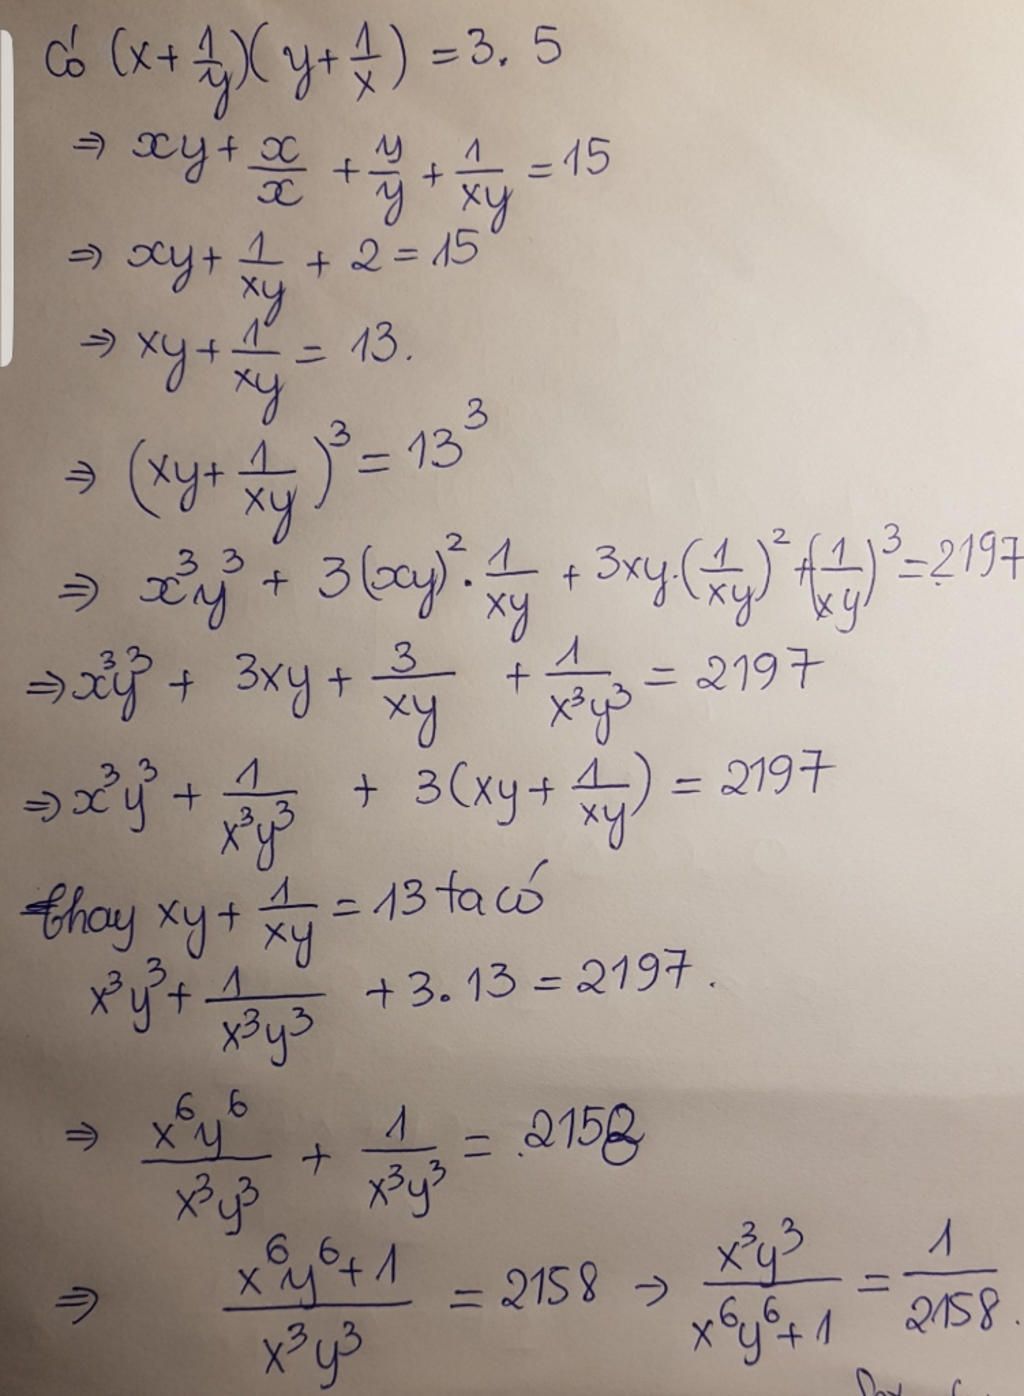 Có (x + 1/y)(y + 1/x) = 3. 5
⇒ xy + x/x + y/y + 1/xy = 15
⇒ xy + 1/xy + 2 = 15
⇒ xy + 1/xy = 13.
⇒ (xy + 1/xy)³ = 13³
⇒ x³y³ + 3(xy)² . 1/xy + 3xy.(1/xy)² + (1/xy)³ = 2197
⇒ x³y³ + 3xy + 3/xy + 1/x³y³ = 2197
⇒ x³y³ + 1/x³y³ + 3(xy + 1/xy) = 2197
thay xy + 1/xy = 13 ta có
x³y³ + 1/x³y³ + 3. 13 = 2197.
⇒ x⁶y⁶/x³y³ + 1/x³y³ = 2158
⇒ (x⁶y⁶ + 1)/x³y³ = 2158 → x³y³/(x⁶y⁶ + 1) = 1/2158.